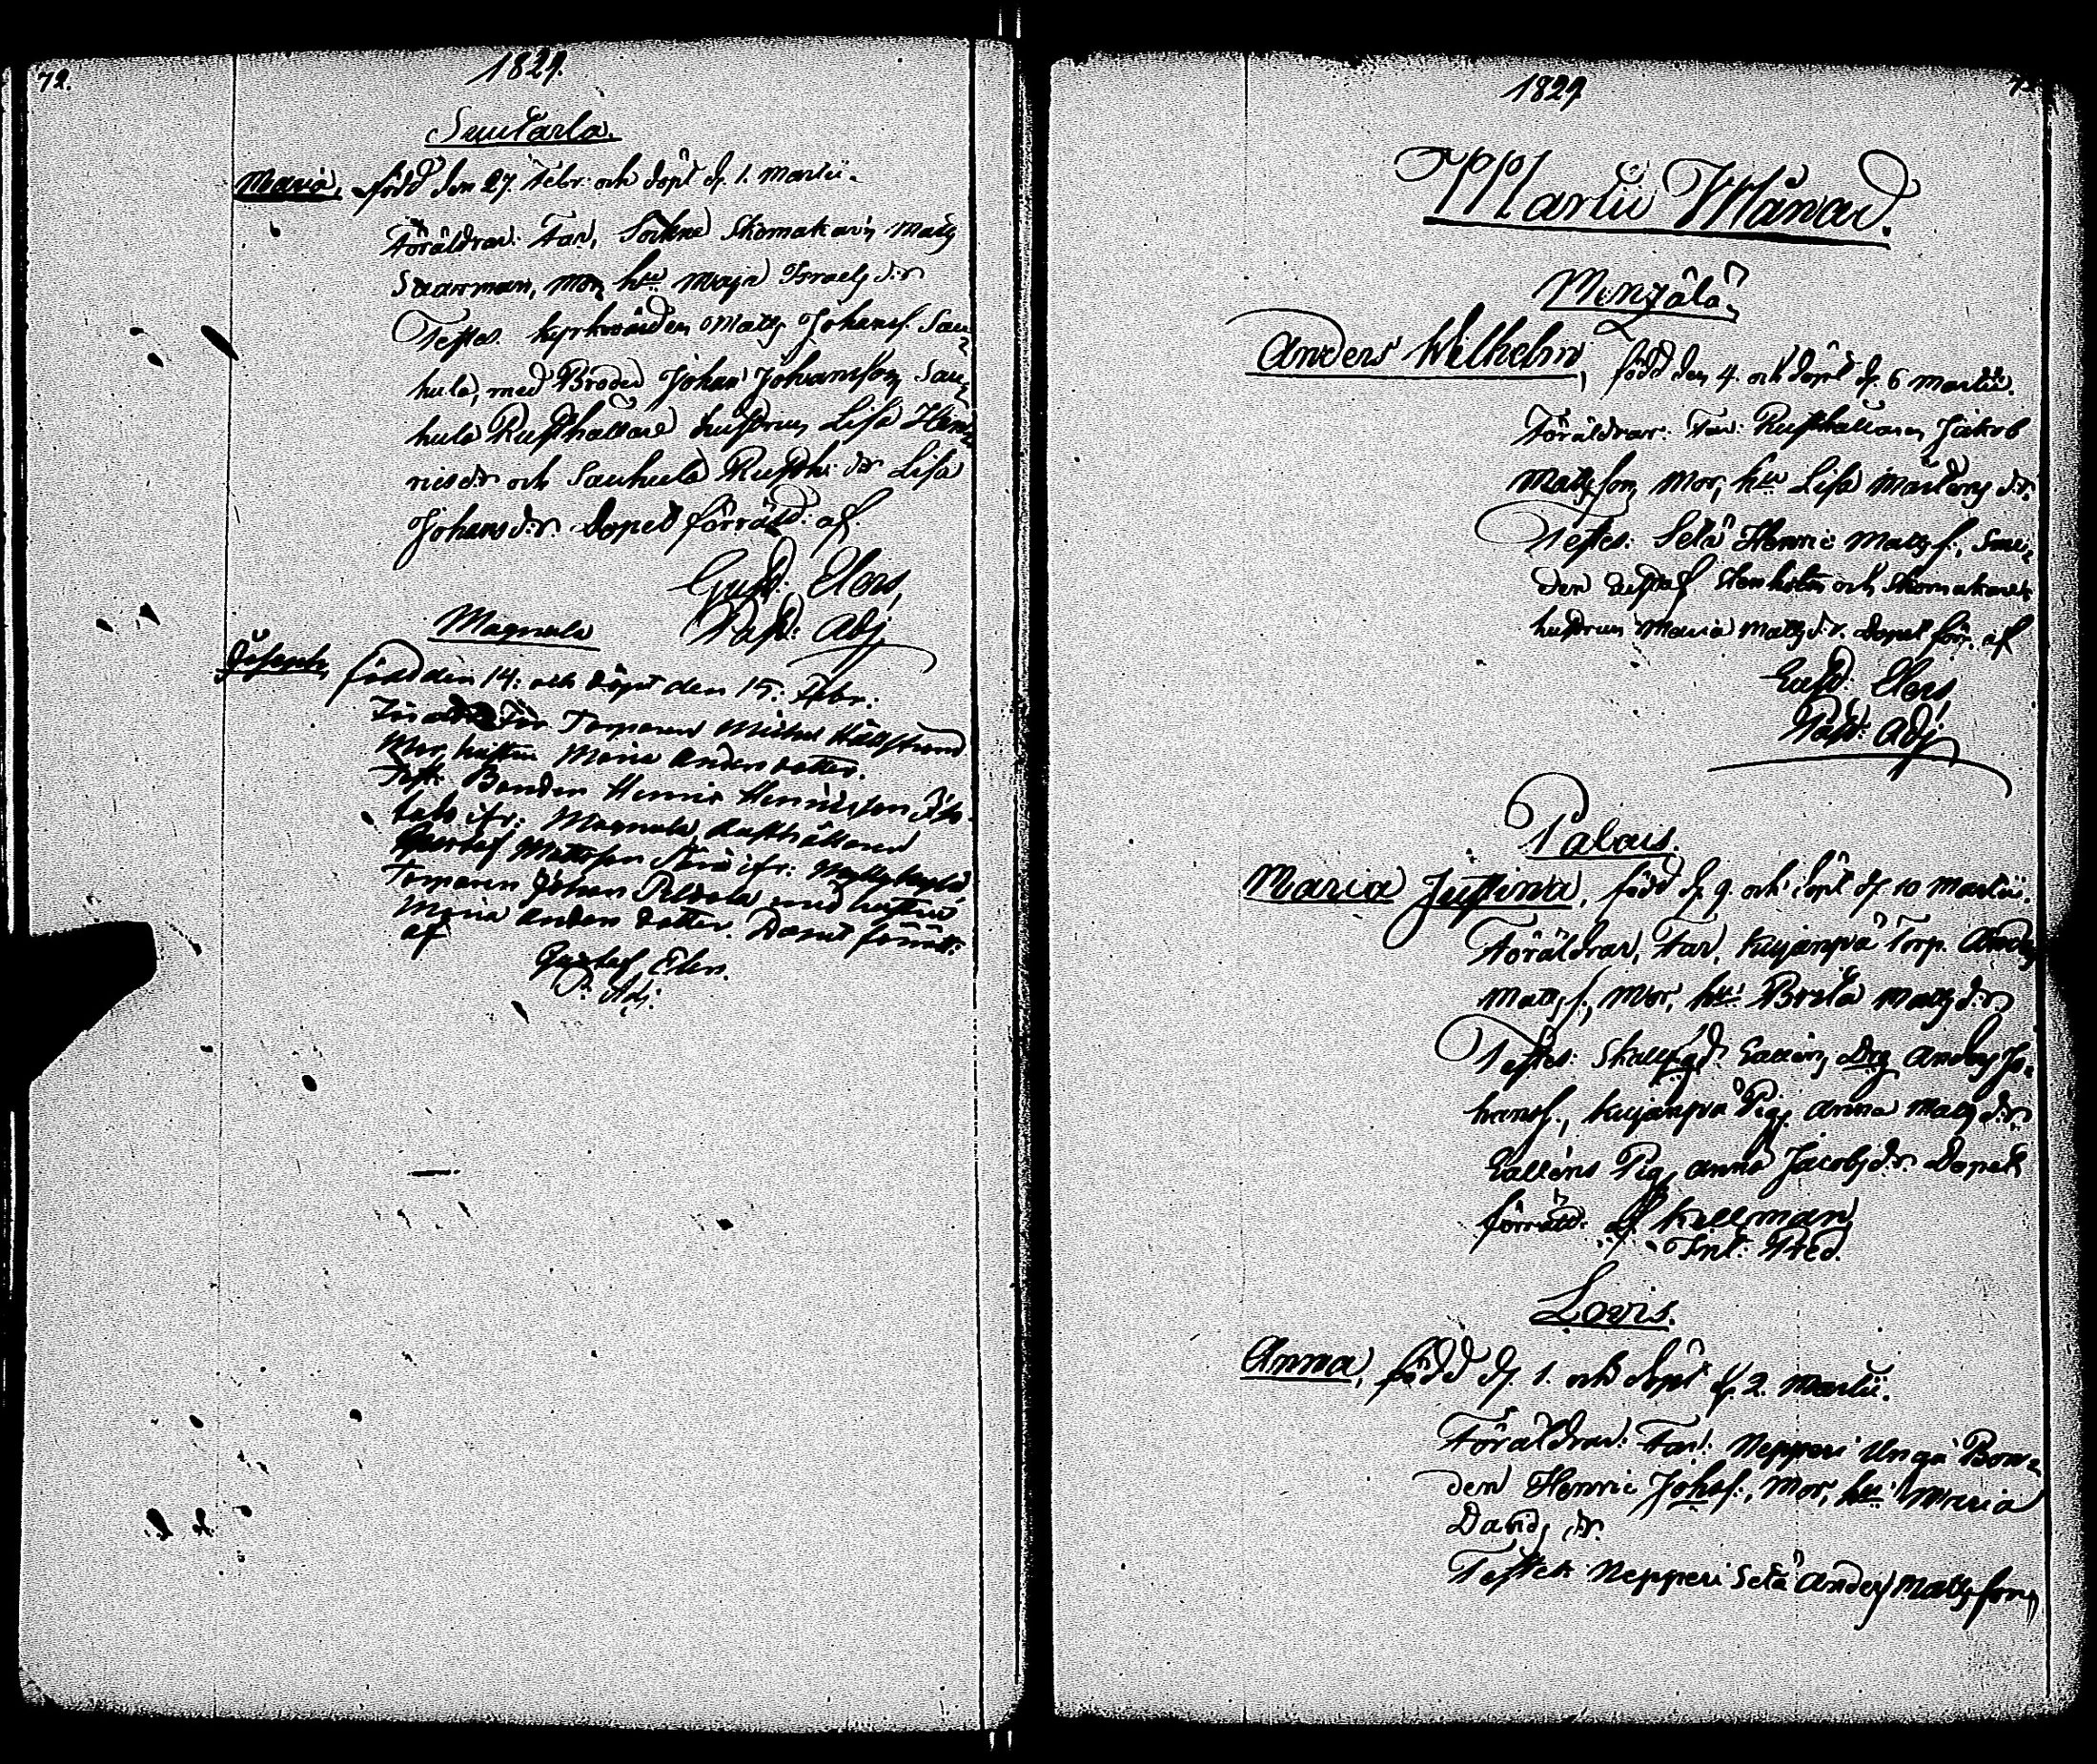 72.
1829.
Suutarla.
Maria, född den 27. Febr: och döpt d. 1. Martii.
Föräldrar: Far, Sockne Skomakarn Matts
Saarman, Mor, hu Maja Israels d:r
Testes: Kyrkvärden Matts Johans. Sau-
hula, med Broder Johan Johansson, Sau-
hula Rusthållare hustrun Lisa Hen-
ricsdr och Sauhula Rusth: dr Lisa
Johans d:r. Dopet förrätt: af.
Gust: Elers,
Past: Adj
Magnula
Joseph, född den 14: och döpt den 15: Febr:
Far Torparen Michel Hällström
Mor, hustru Maria Anders dotter.
Test: Bonden Henric Henricsson
ifr: Magnula, Rusthållaren
Gustaf Mattsson ifr:
Torparen Johan med hustru
Maria Anders dotter. Dopet förrätt:
af
Gustaf Elers.
P. Adj.
1829
Martii Månad.
Monzälä
Anders Wilhelm, född den 4. och döpt d. 6 Martii.
Föräldrar: Far: Rusthållaren Jakob
Mattsson, Mor, hu Lisa Mårtens d:r.
Testes: Setä Henric Matts s., Sme-
den Stenholm och Skomakaren
hustrun Maria Matts d:r. Dopet förr. af
Gust: Elers
Past: Adj
Palaus.
Maria Justina, född d. 9. och döpt d. 10 Martii.
Föräldrar, Far, Kujanpää Torp. Anders
Matts s., Mor, hu: Brita Matts d:r
Testes: Eallen, Drg Anders Jo-
hans s., Kujanpää Pig. Anna Matts d:r,
Eallens Pig. Anna Jacobs d:r. Dopet
förrätt: af Kellman
Int: Pred.
Loers.
Anna, född d. 1. och döpt d. 2. Martii.
Föräldrar: Far: Nepperi Unga Bon-
den Henric Johss:, Mor, hu: Maria
Davids dr.
Testes: Nepperi Setä Anders Mattsson,